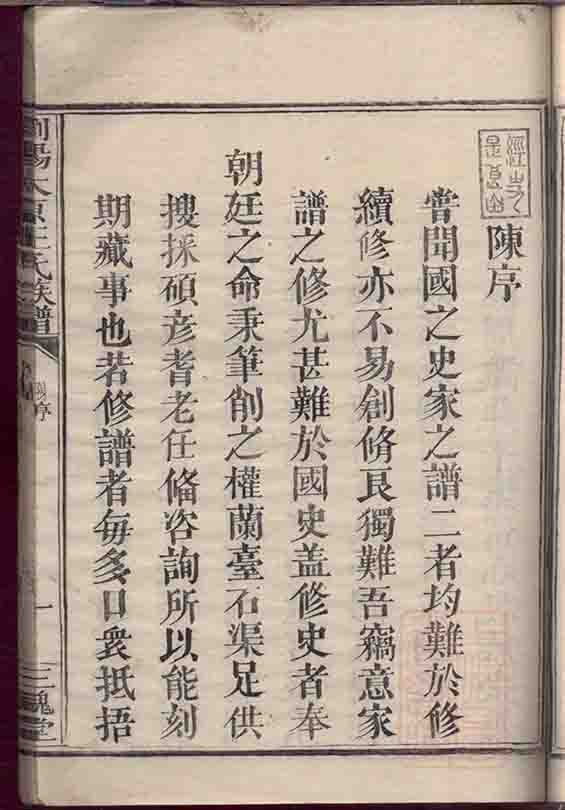 陳序
嘗聞國之史家之譜二者均難於修
續修亦不易創脩良獨難吾竊意家
譜之修尤甚難於國史盖修史者奉
朝廷之命秉筆削之權蘭臺石渠足供
搜採碩彦耆老任偹咨詢所以能刻
期蕆事也若修譜者每多口衆抵捂
瀏陽太原王氏族譜
序
一
三槐堂